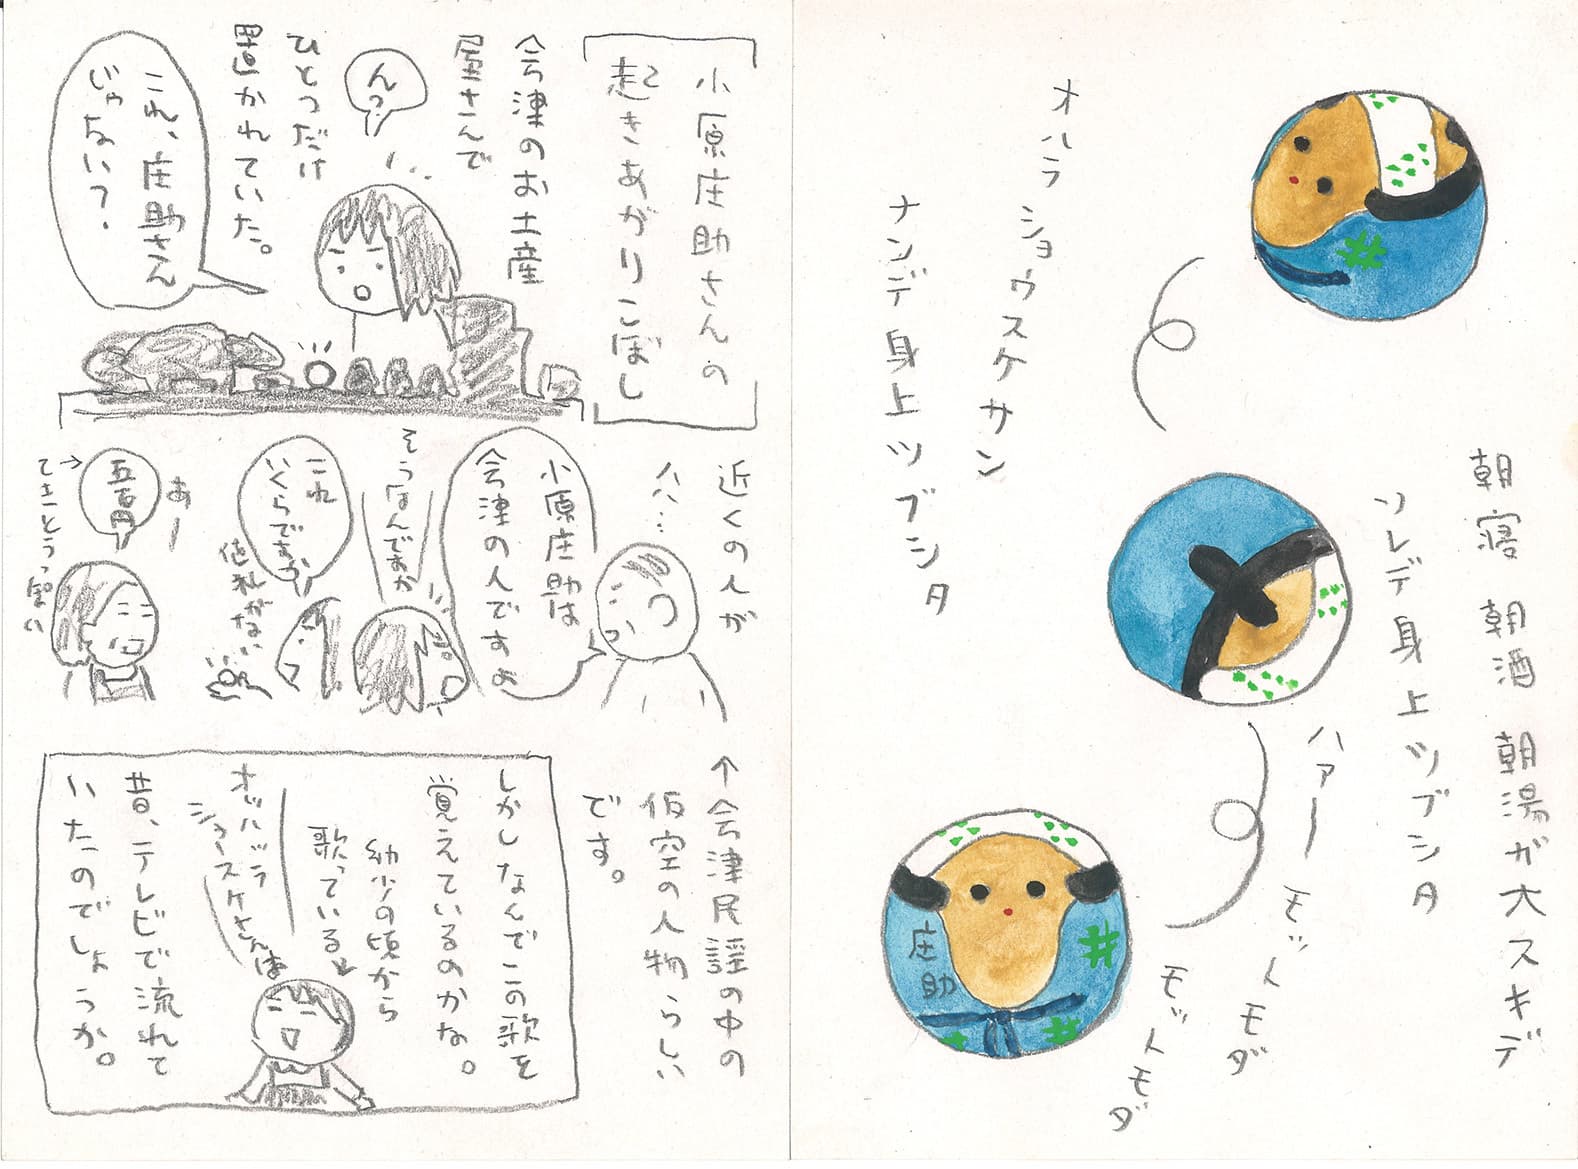 オハラ
ショウスケサン
ナンデ身上ツブシタ
朝寝 朝酒 朝湯が大スキデ
ソレデ身上ツブシタ
ハァー
モットモダ
モットモダ
庄助
小原庄助さんの
起きあがりこぼし
会津のお土産
屋さんで
ひとつだけ
置かれていた。
ん?
これ、庄助さん
じゃない?
近くの人が
ハハ…
小原庄助は
会津の人ですよ
そうなんですか
これ
いくらですか
値札がない
あー
五百円
てきとうっぽい
↑会津民謡の中の
仮空の人物らしい
です。
しかしなんでこの歌を
覚えているのかな。
幼少の頃から
歌っている
オッハッラ
ショースケさんは
昔、テレビで流れて
いたのでしょうか。